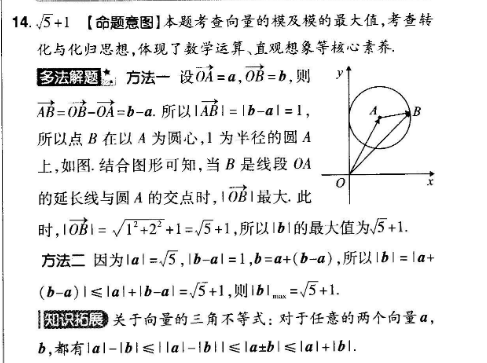 14. √5+1 【命题意图】本题考查向量的模及模的最大值,考查转
化与化归思想,体现了数学运算、直观想象等核心素养.
多法解题 方法一 设OA→=a,OB→=b,则
AB→=OB→-OA→=b-a. 所以|AB→|=|b-a|=1,
所以点 B 在以 A 为圆心,1 为半径的圆 A
上,如图. 结合图形可知,当 B 是线段 OA
的延长线与圆 A 的交点时,|OB→|最大. 此
y
A
B
O
x
时,|OB→|=√(1²+2²)+1=√5+1,所以|b|的最大值为√5+1.
方法二 因为|a|=√5,|b-a|=1,b=a+(b-a),所以|b|=|a+
(b-a)|≤|a|+|b-a|=√5+1,则|b|max=√5+1.
知识拓展 关于向量的三角不等式:对于任意的两个向量a,
b,都有|a|-|b|≤||a|-|b||≤|a±b|≤|a|+|b|.